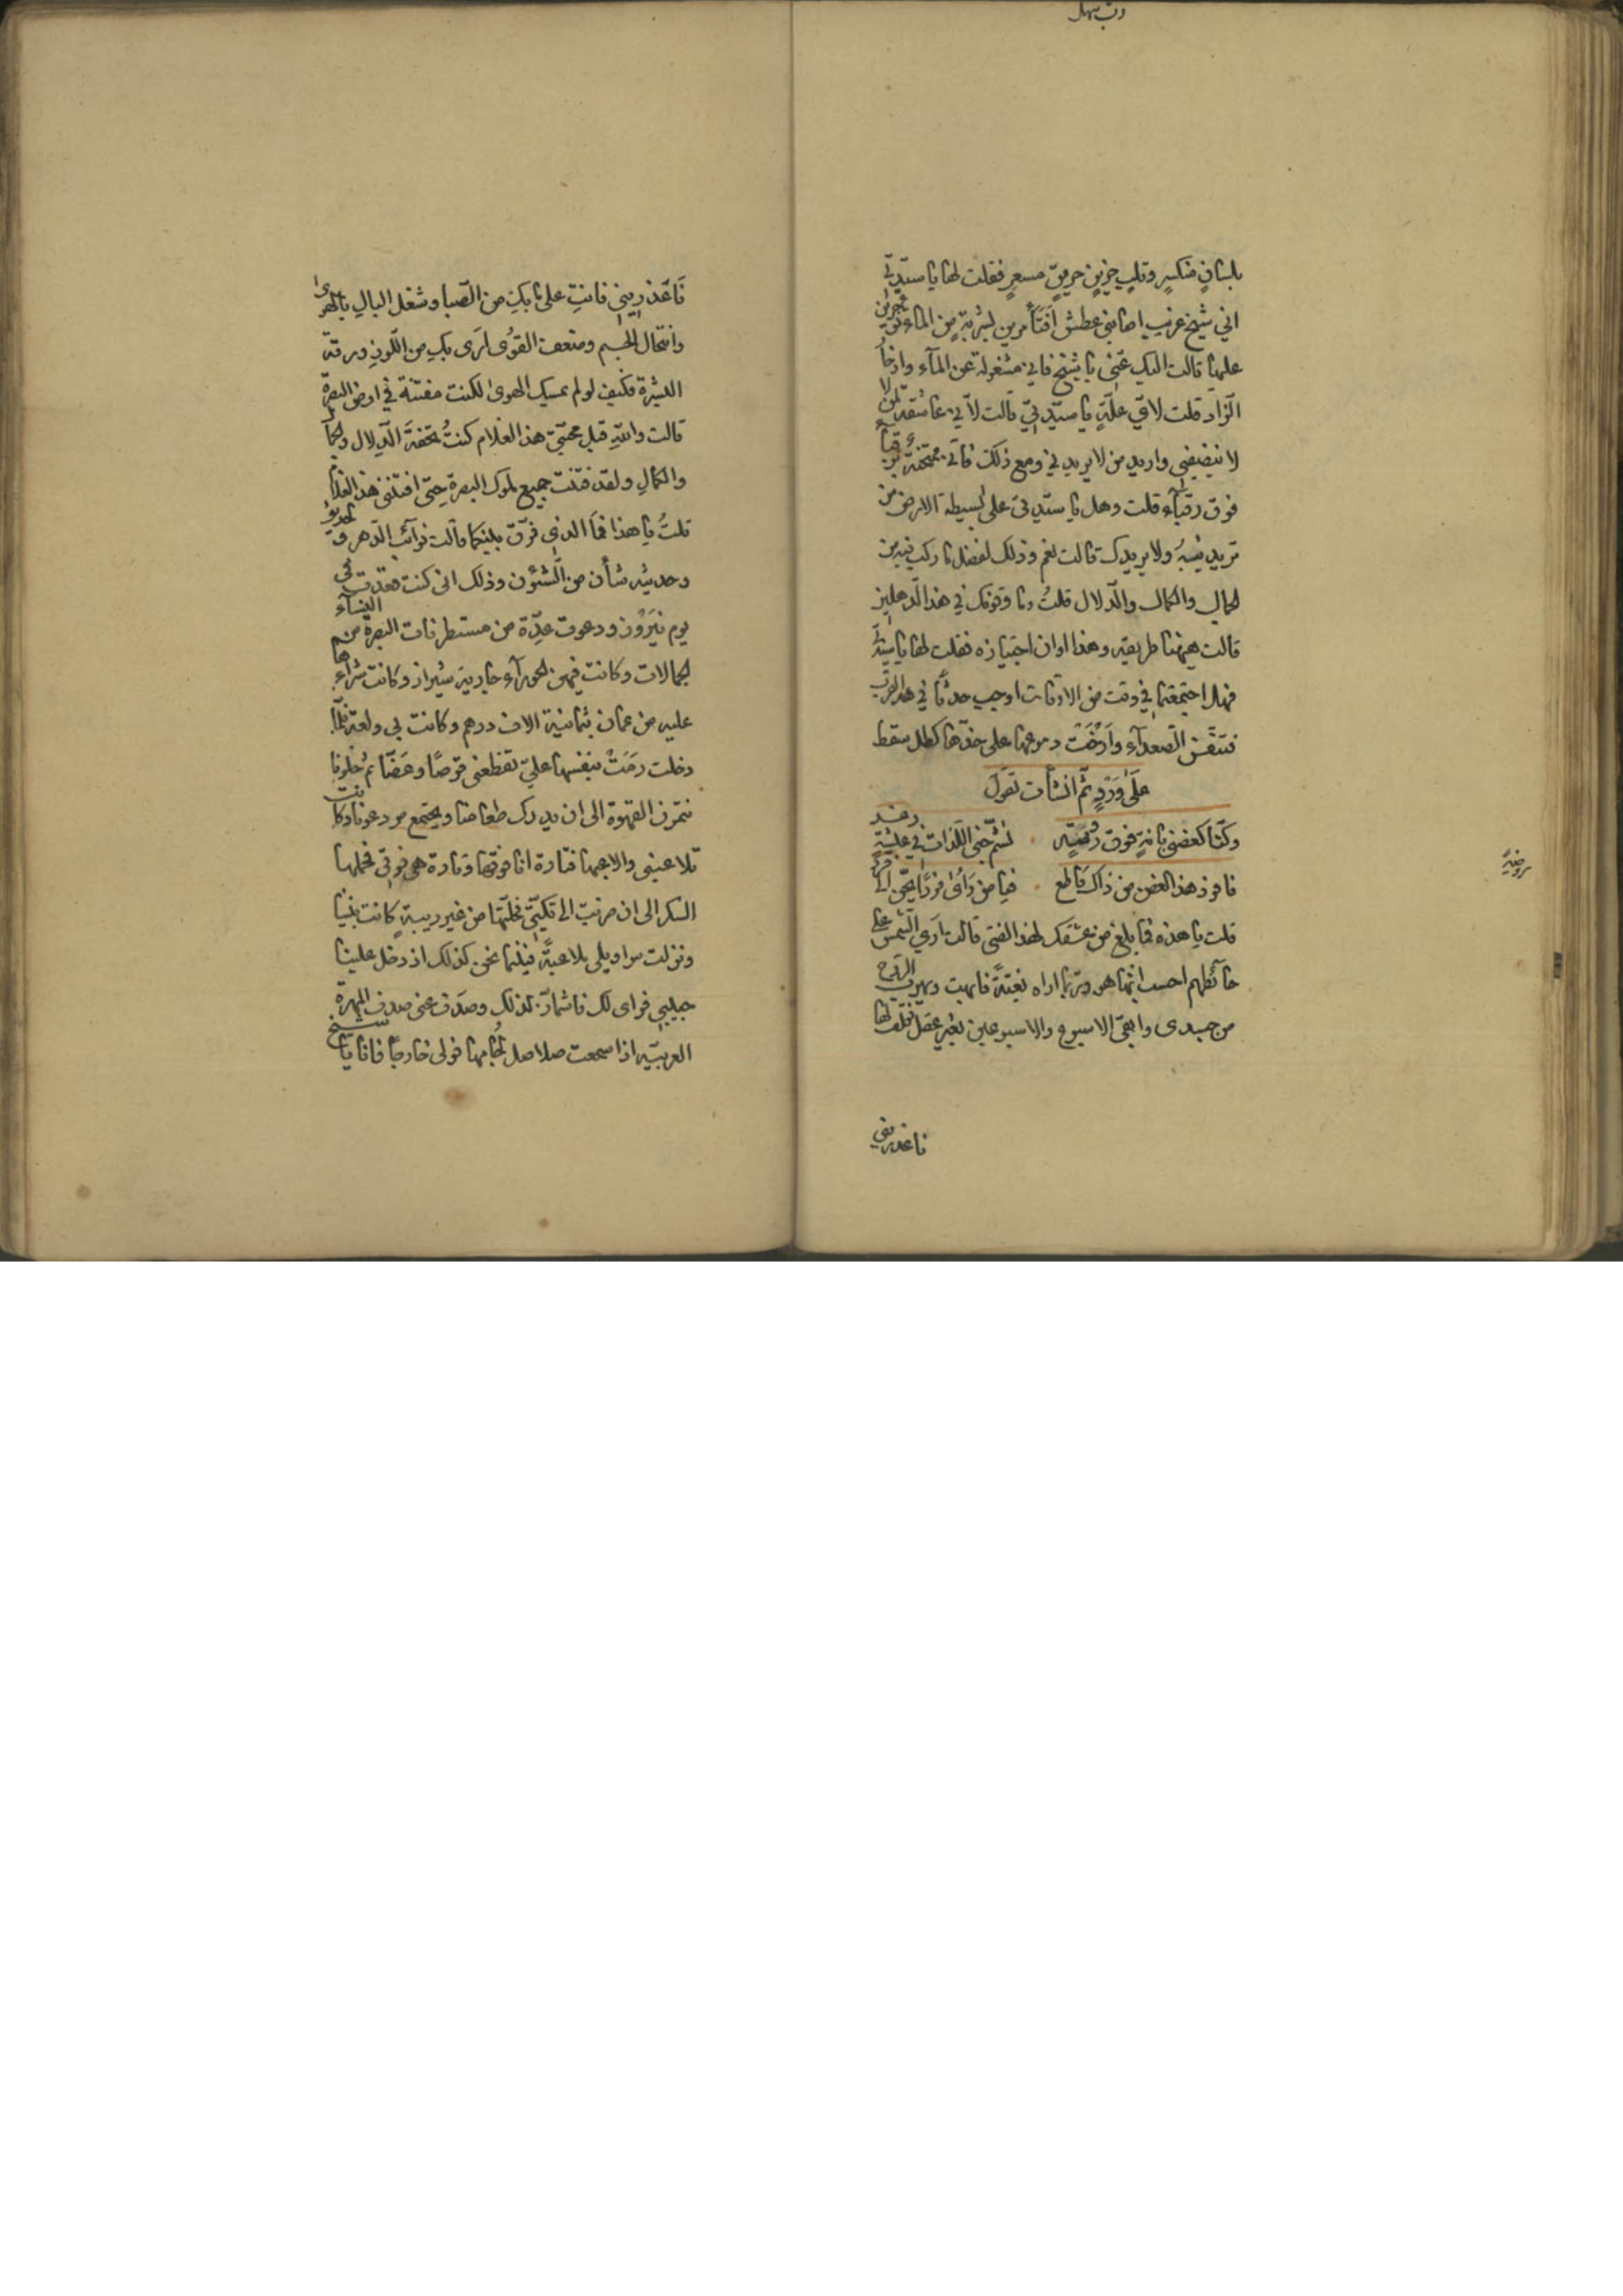 بلسان منكسر وقلب حزين حريق مسعر فقلت لها يا سيدتي
اني شيخ غريب اصابني عطش افتأمرين بشربة من الماء تؤجرين
عليها قالت اليك عني يا شيخ فاني مشغولة عن المآء وادخا
الزاد قلت لاي علة يا سيدتي قالت لاني عاشقة لمن لا
لا ينصفني واريد من لا يريدني ومع ذلك فاني ممتحنة برقبآء
فوق رقبآء قلت وهل يا سيدتي على بسيطة الارض من
تريدينه ولا يريدك قالت نعم وذلك لفضل ما ركب فيه من
الجمال والكمال والدلال قلت وما وقوفك في هذا الدهليز
قالت هيهنا طريقه وهذا اوان اجتيازه فقلت لها يا سيدتي
فهل اجتمعتما في وقت من الاوقات اوجب حدثا في هذا القرب
فتنفس الصعدآء وارخت دموعها على خدها كطل سقط
على ورد ثم انشأت تقول
وكنا كغصني بانة فوق روضة نشم جنى اللذات في عيشة رغد
فافرد هذا الغصن من ذاك قاطع فيا من رأى فردا يحن الى فرد
قلت يا هذه فما بلغ من عشقك لهذا الفتى قالت ارى الشمس على
حائطهم احسب انها هو وربما اراه بغتة فابهت ويهرب الروح
من جسدى وابقى الاسبوع والاسبوعين بغير عقل فقلت لها
فاعذريني
روضة
فاعذريني فانت على ما بك من الصبا وشغل البال بالهوى
وانتحال الجسم وضعف القوى ارى بك من اللون ورقة
البشرة فكيف لو لم يمسك الهوى لكنت مفتنة في ارض البصرة
قالت والله قبل محبتي هذا الغلام كنت تحفة الدلال والجمال
والكمال ولقد فتنت جميع ملوك البصرة حتى افتنني هذا الغلام
قلت يا هذا فما الذي فرق بينكما قالت نوآئب الدهر و لحديثي
وحديثه شأن من الشئون وذلك انى كنت قعدت في
يوم نيروز ودعوت عدة من مستطرفات البصرة من النسآء
الجمالات وكانت فيهن لحورآء جارية شيراز وكانت شراءها
عليه من عمان بثمانية الاف درهم وكانت بي ولعة فلما
دخلت رمت بنفسها علي تقطعني قرصا وعضا ثم خلونا
نتمزز القهوة الى ان يدرك طعامنا ويجتمع من دعونا وكانت
تلاعبني والاعبها فتارة انا فوقها وتارة هى فوقي فحملها
السكر الى ان ضربت الى تكتي فحلتها من غير ريبة كانت بيننا
ونزلت سراويلى ملاعبة فبينما نحن كذلك اذ دخل علينا
حبيبي فراى ذلك فاشمأز لذلك وصدف عني صدف المهرة
العربية اذا سمعت صلاصل لجامها فولى خارجا فانا يا شيخ